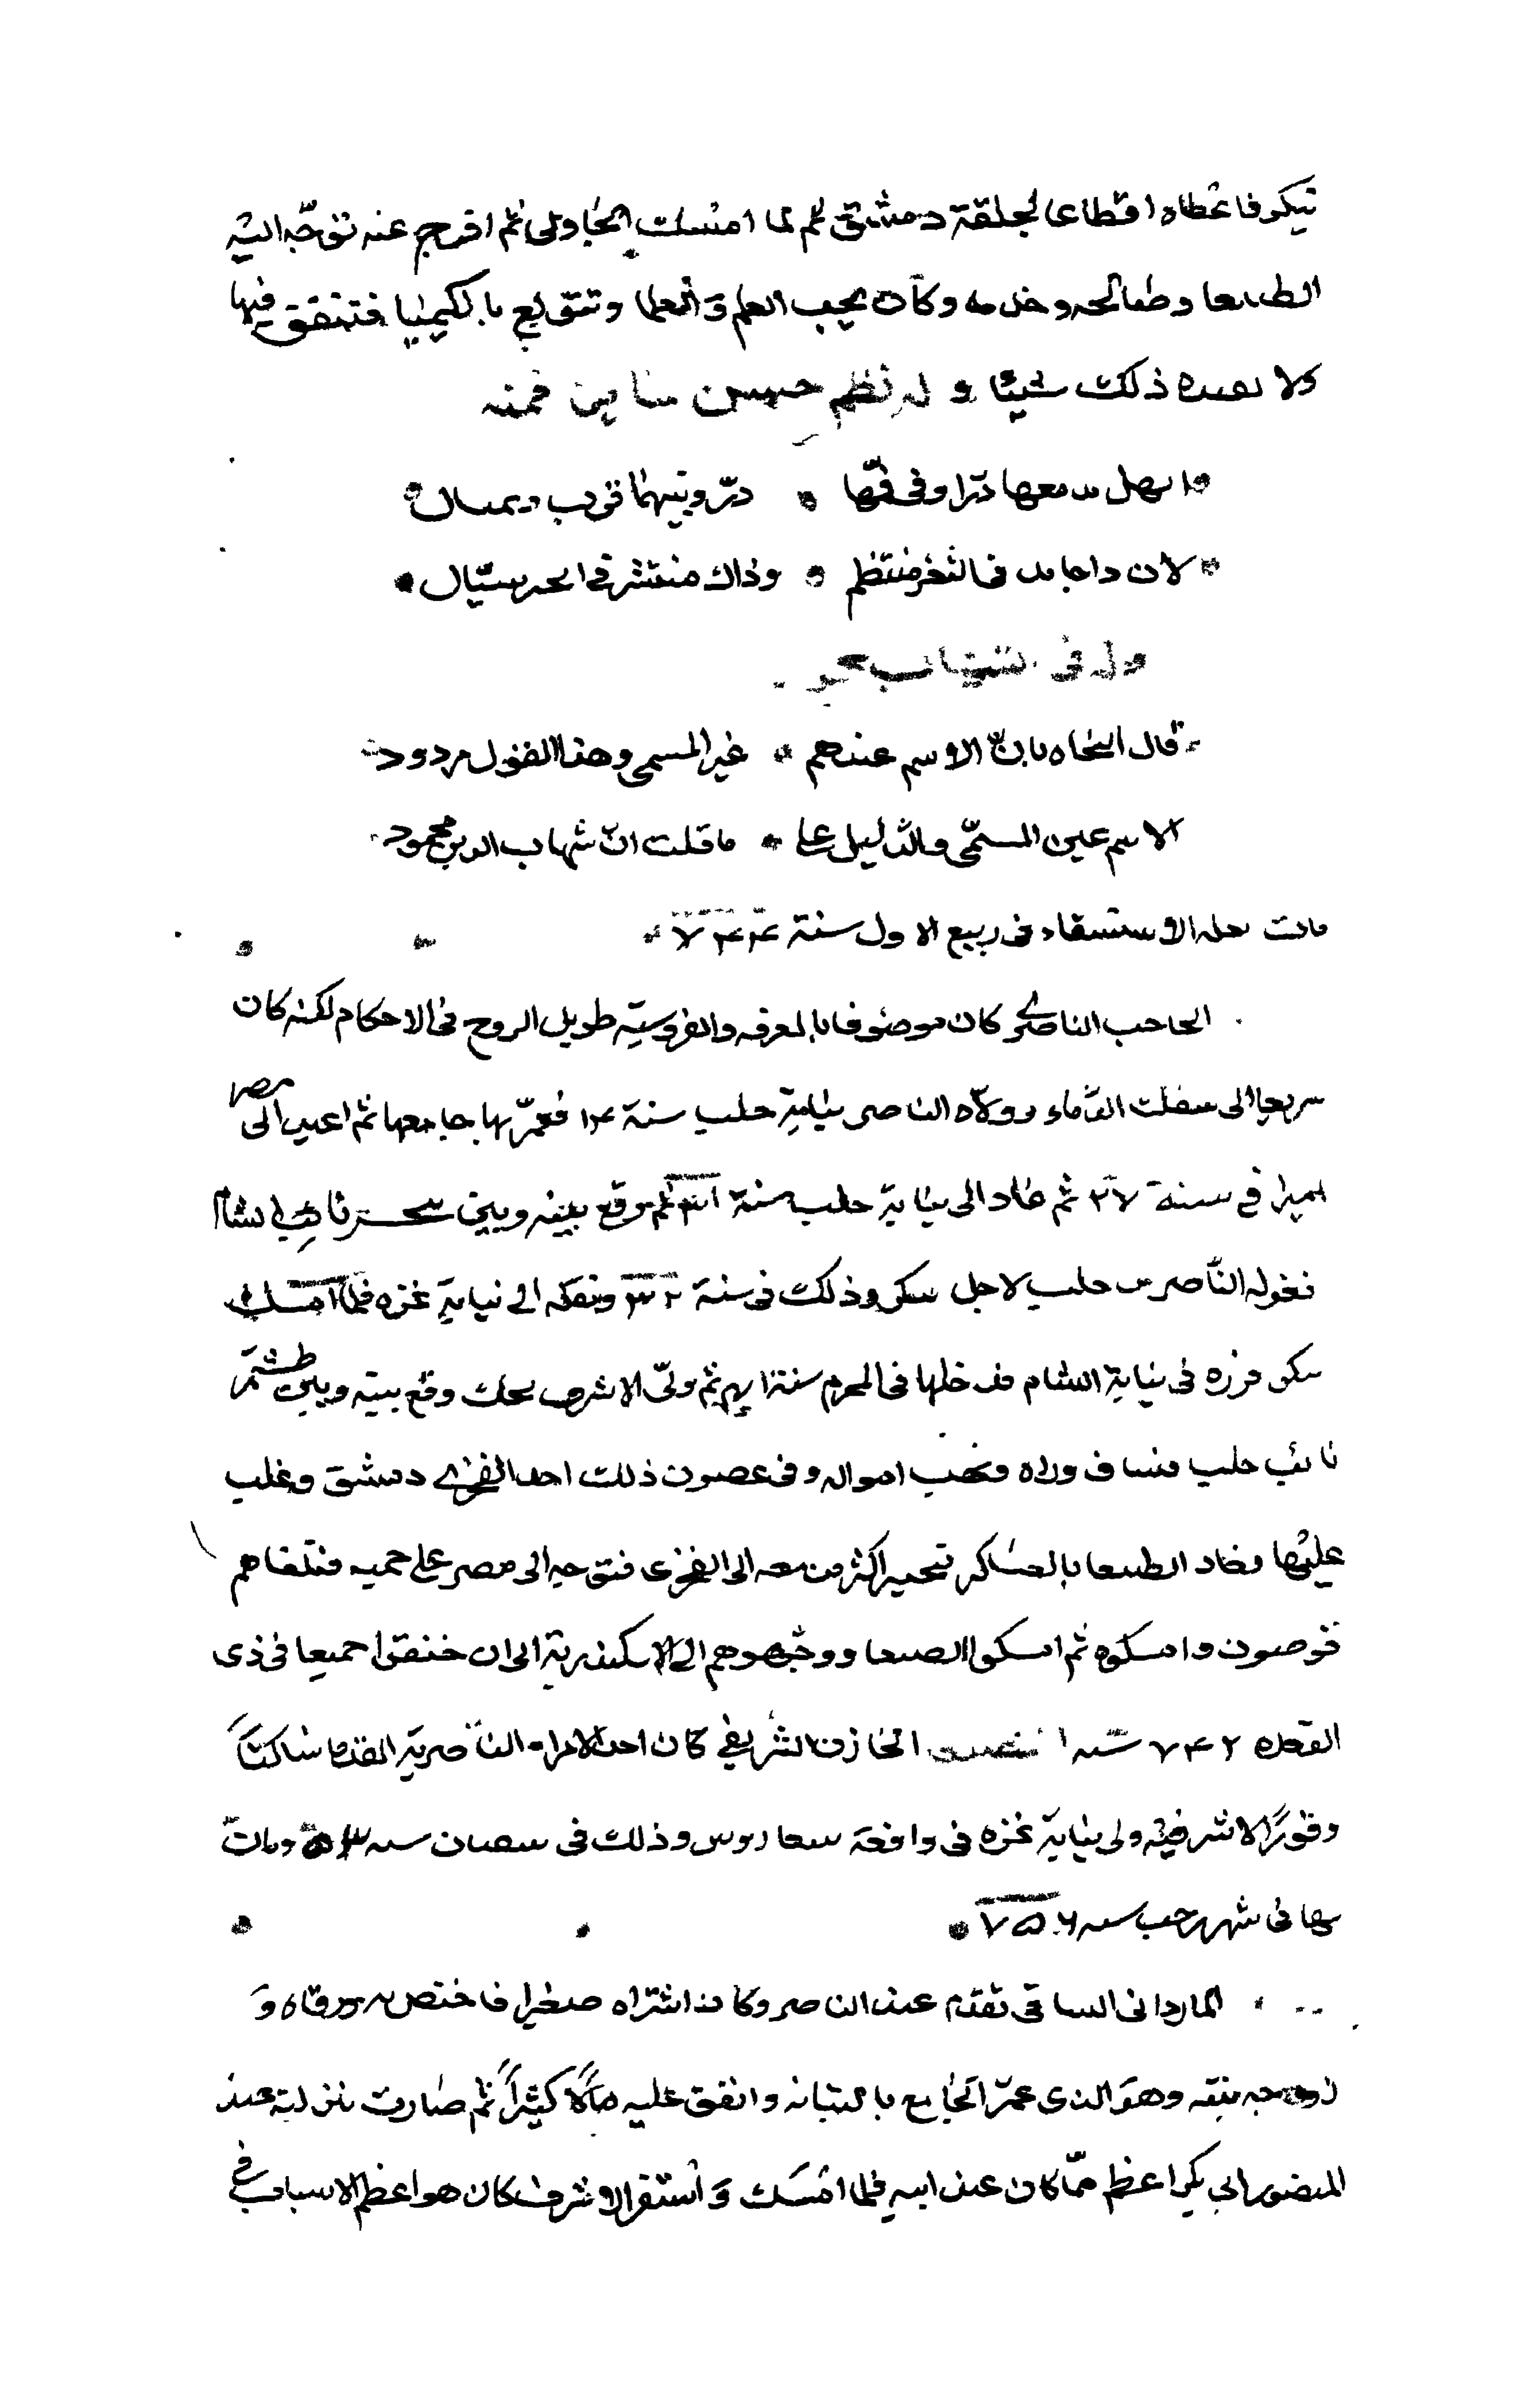 تنكز فاعطاه اقطاعا لحلقة دمشق ثم لما امسك الجاولى ثم افرج عنه توجّه اليه
الطنبغا وصالحه وخدمه وكان يحب العلم والعلما وتولع بالكيميا فتنفق فيها
ولا تفيده ذلك شيئا وله نظم حسن فمنه
وانهل مدمعها درّا وفى فمّها • درّ وبينهما فرق وتمثال
• لان ذا جامد فى الثغر منتظم • وذاك منتثر فى الخد سيّال •
وله فى
قال النحاه بانّ الاسم عندهم • غير المسمى وهذا القول مردود
الاسم عين المسمّى والدليل على • ما قلت انّ شهاب الدين محمود
مات بعله الاستسقاء فى ربيع الاول سنة ٧٤٤
الحاجب الناصرى كان موصوفا بالمعرفه والفروسيّه طويل الروح فى الاحكام لكنه كان
سريعا الى سفك الدّماء وولاّه الناصر نيابة حلب سنة ١٤ فعمّر بها جامعها ثم اعيد الى مصر
اميرا فى سنة ٢٧ ثم عاد الى نيابة حلب سنة ٣١ ثم وقع بينه وبين نائب الشام
فعزله الناصر من حلب لاجل تنكز وذلك فى سنة ٣٢ ونقله الى نيابة غزه فلما امسك
تنكز قرره فى نيابة الشام فدخلها فى المحرم سنة ٤١ ثم ولّى الاشرف كجك وقع بينه وبين طشتمر
نائب حلب فساق وراه ونهب امواله وفى غضون ذلك اخذ الفخرى دمشق وغلب
عليها فعاد الطنبغا بالعساكر فتحيز اكثر من معه الى الفخرى فتوجه الى مصر على حميه فتلقاهم
قوصون وامسكوه ثم امسكوا الطنبغا ووجّهوهم الى الاسكندرية الى ان خنقوا جميعا فى ذى
القعده ٧٤٢ سنه الخازن الشريفى كان احد الامراء الناصرية المقدما ساكنًا
وقورًا الاشرفيه ولى نيابة غزه فى واقعة بيبغا روس وذلك فى شعبان سنه ٥٣ ومات
بها فى شهر رجب سنه ٧٥٦
الماردانى الساقى تقدم عند الناصر وكان اشتراه صغيرا فاختص به ورقاه و
زوجه بنته وهو الذى عمّر الجامع بالتبانه وانفق عليه مالًا كثيرًا ثم صارت منزلته عند
المنصور ابى بكر اعظم ممّا كان عند ابيه فلما امسك واستقر الاشرف كان هو اعظم الاسباب فى